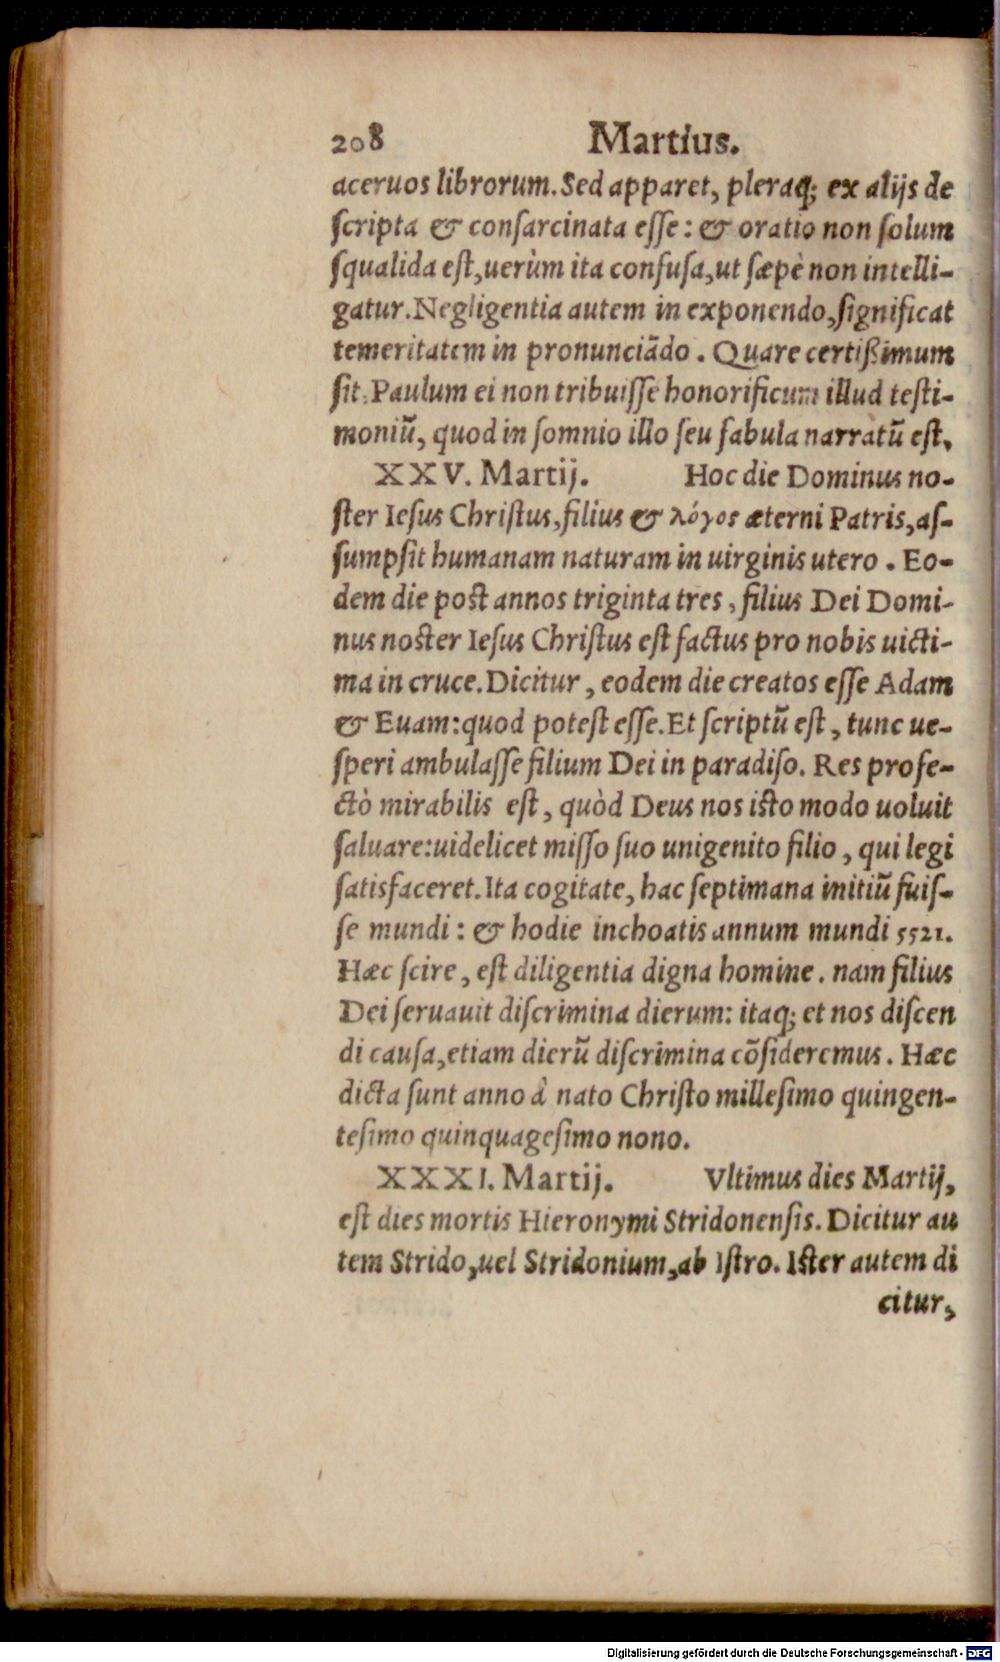 208 Martius.
aceruos librorum. Sed apparet, pleraq; ex alijs de
ſcripta & conſarcinata eſſe: & oratio non ſolum
ſqualida eſt, uerùm ita confuſa, ut ſæpè non intelli-
gatur. Negligentia autem in exponendo, ſignificat
temeritatem in pronunciãdo. Quare certißimum
ſit, Paulum ei non tribuiſſe honorificum illud teſti-
moniũ, quod in ſomnio illo ſeu fabula narratũ eſt.
XXV. Martij. Hoc die Dominus no-
ſter Ieſus Chriſtus, filius & λόγος æterni Patris, aſ-
ſumpſit humanam naturam in uirginis utero. Eo-
dem die poſt annos triginta tres, filius Dei Domi-
nus noſter Ieſus Chriſtus eſt factus pro nobis uicti-
ma in cruce. Dicitur, eodem die creatos eſſe Adam
& Euam: quod poteſt eſſe. Et ſcriptũ eſt, tunc ue-
ſperi ambulaſſe filium Dei in paradiſo. Res profe-
ctò mirabilis eſt, quòd Deus nos iſto modo uoluit
ſaluare: uidelicet miſſo ſuo unigenito filio, qui legi
ſatisfaceret. Ita cogitate, hac ſeptimana initiũ fuiſ-
ſe mundi: & hodie inchoatis annum mundi 5521.
Hæc ſcire, eſt diligentia digna homine. nam filius
Dei ſeruauit diſcrimina dierum: itaq; et nos diſcen
di cauſa, etiam dierũ diſcrimina cõſideremus. Hæc
dicta ſunt anno à nato Chriſto milleſimo quingen-
teſimo quinquageſimo nono.
XXXI. Martij. Vltimus dies Martij,
eſt dies mortis Hieronymi Stridonenſis. Dicitur au
tem Strido, uel Stridonium, ab Iſtro. Iſter autem di
citur,
Digitalisierung gefördert durch die Deutsche Forschungsgemeinschaft - DFG